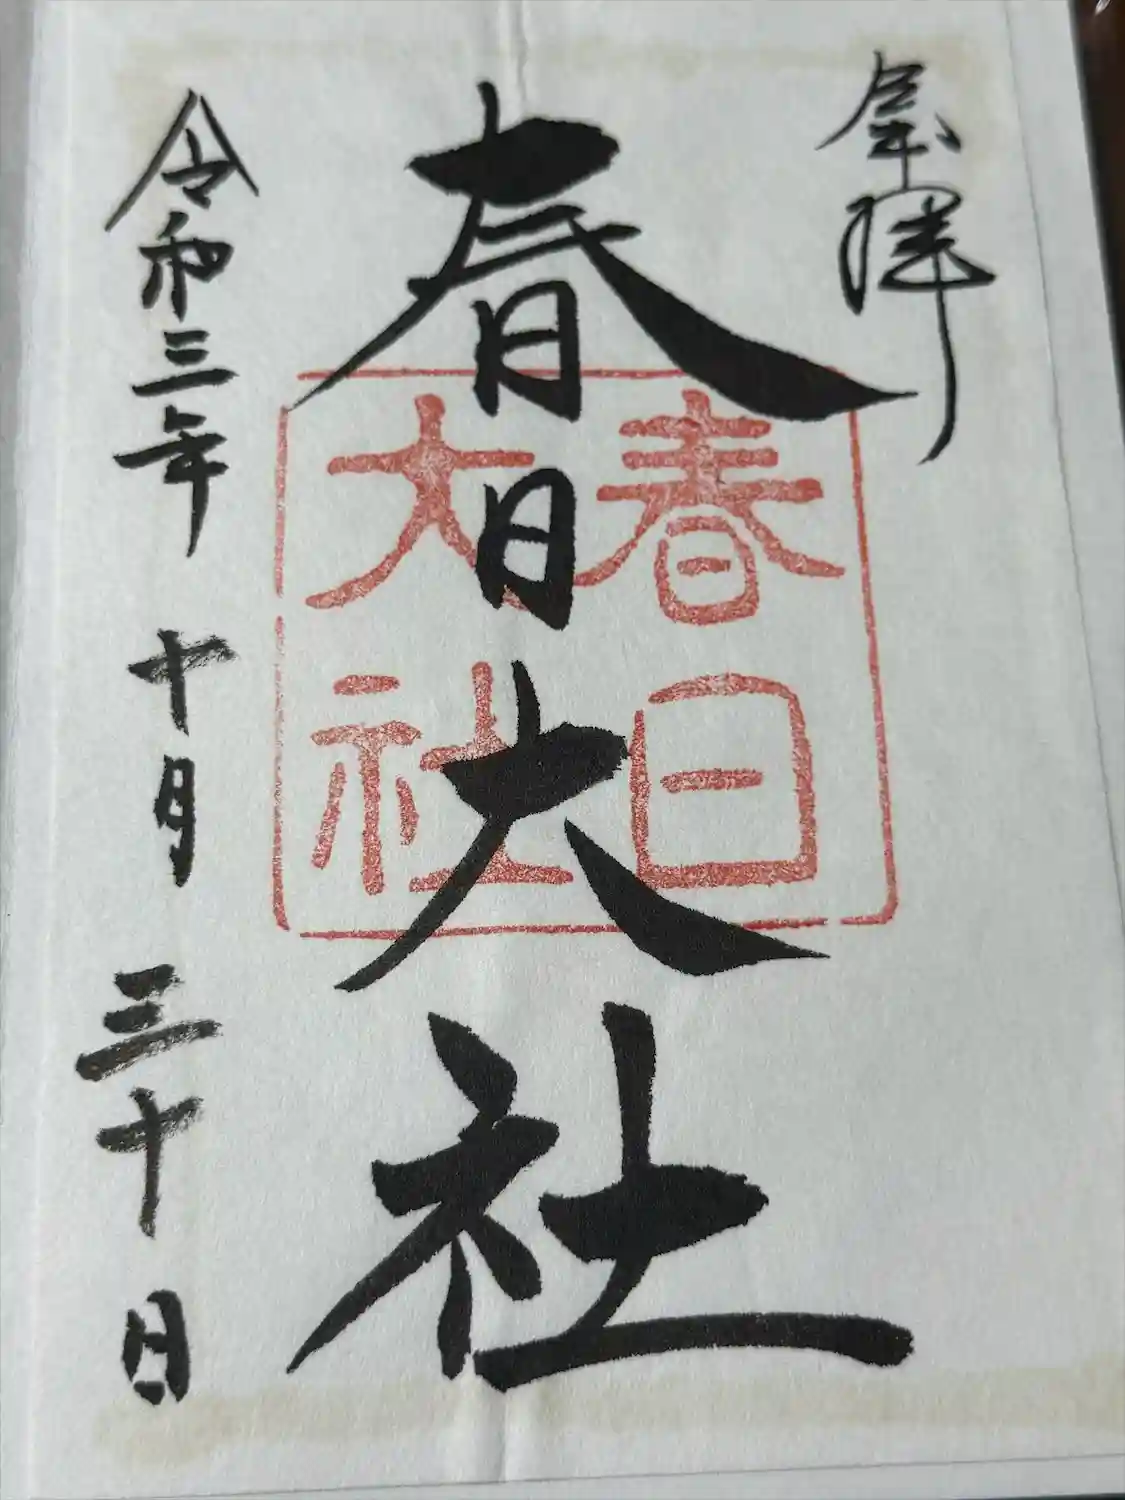 奉拝
春日大社
春日
大社
令和三年十月三十日